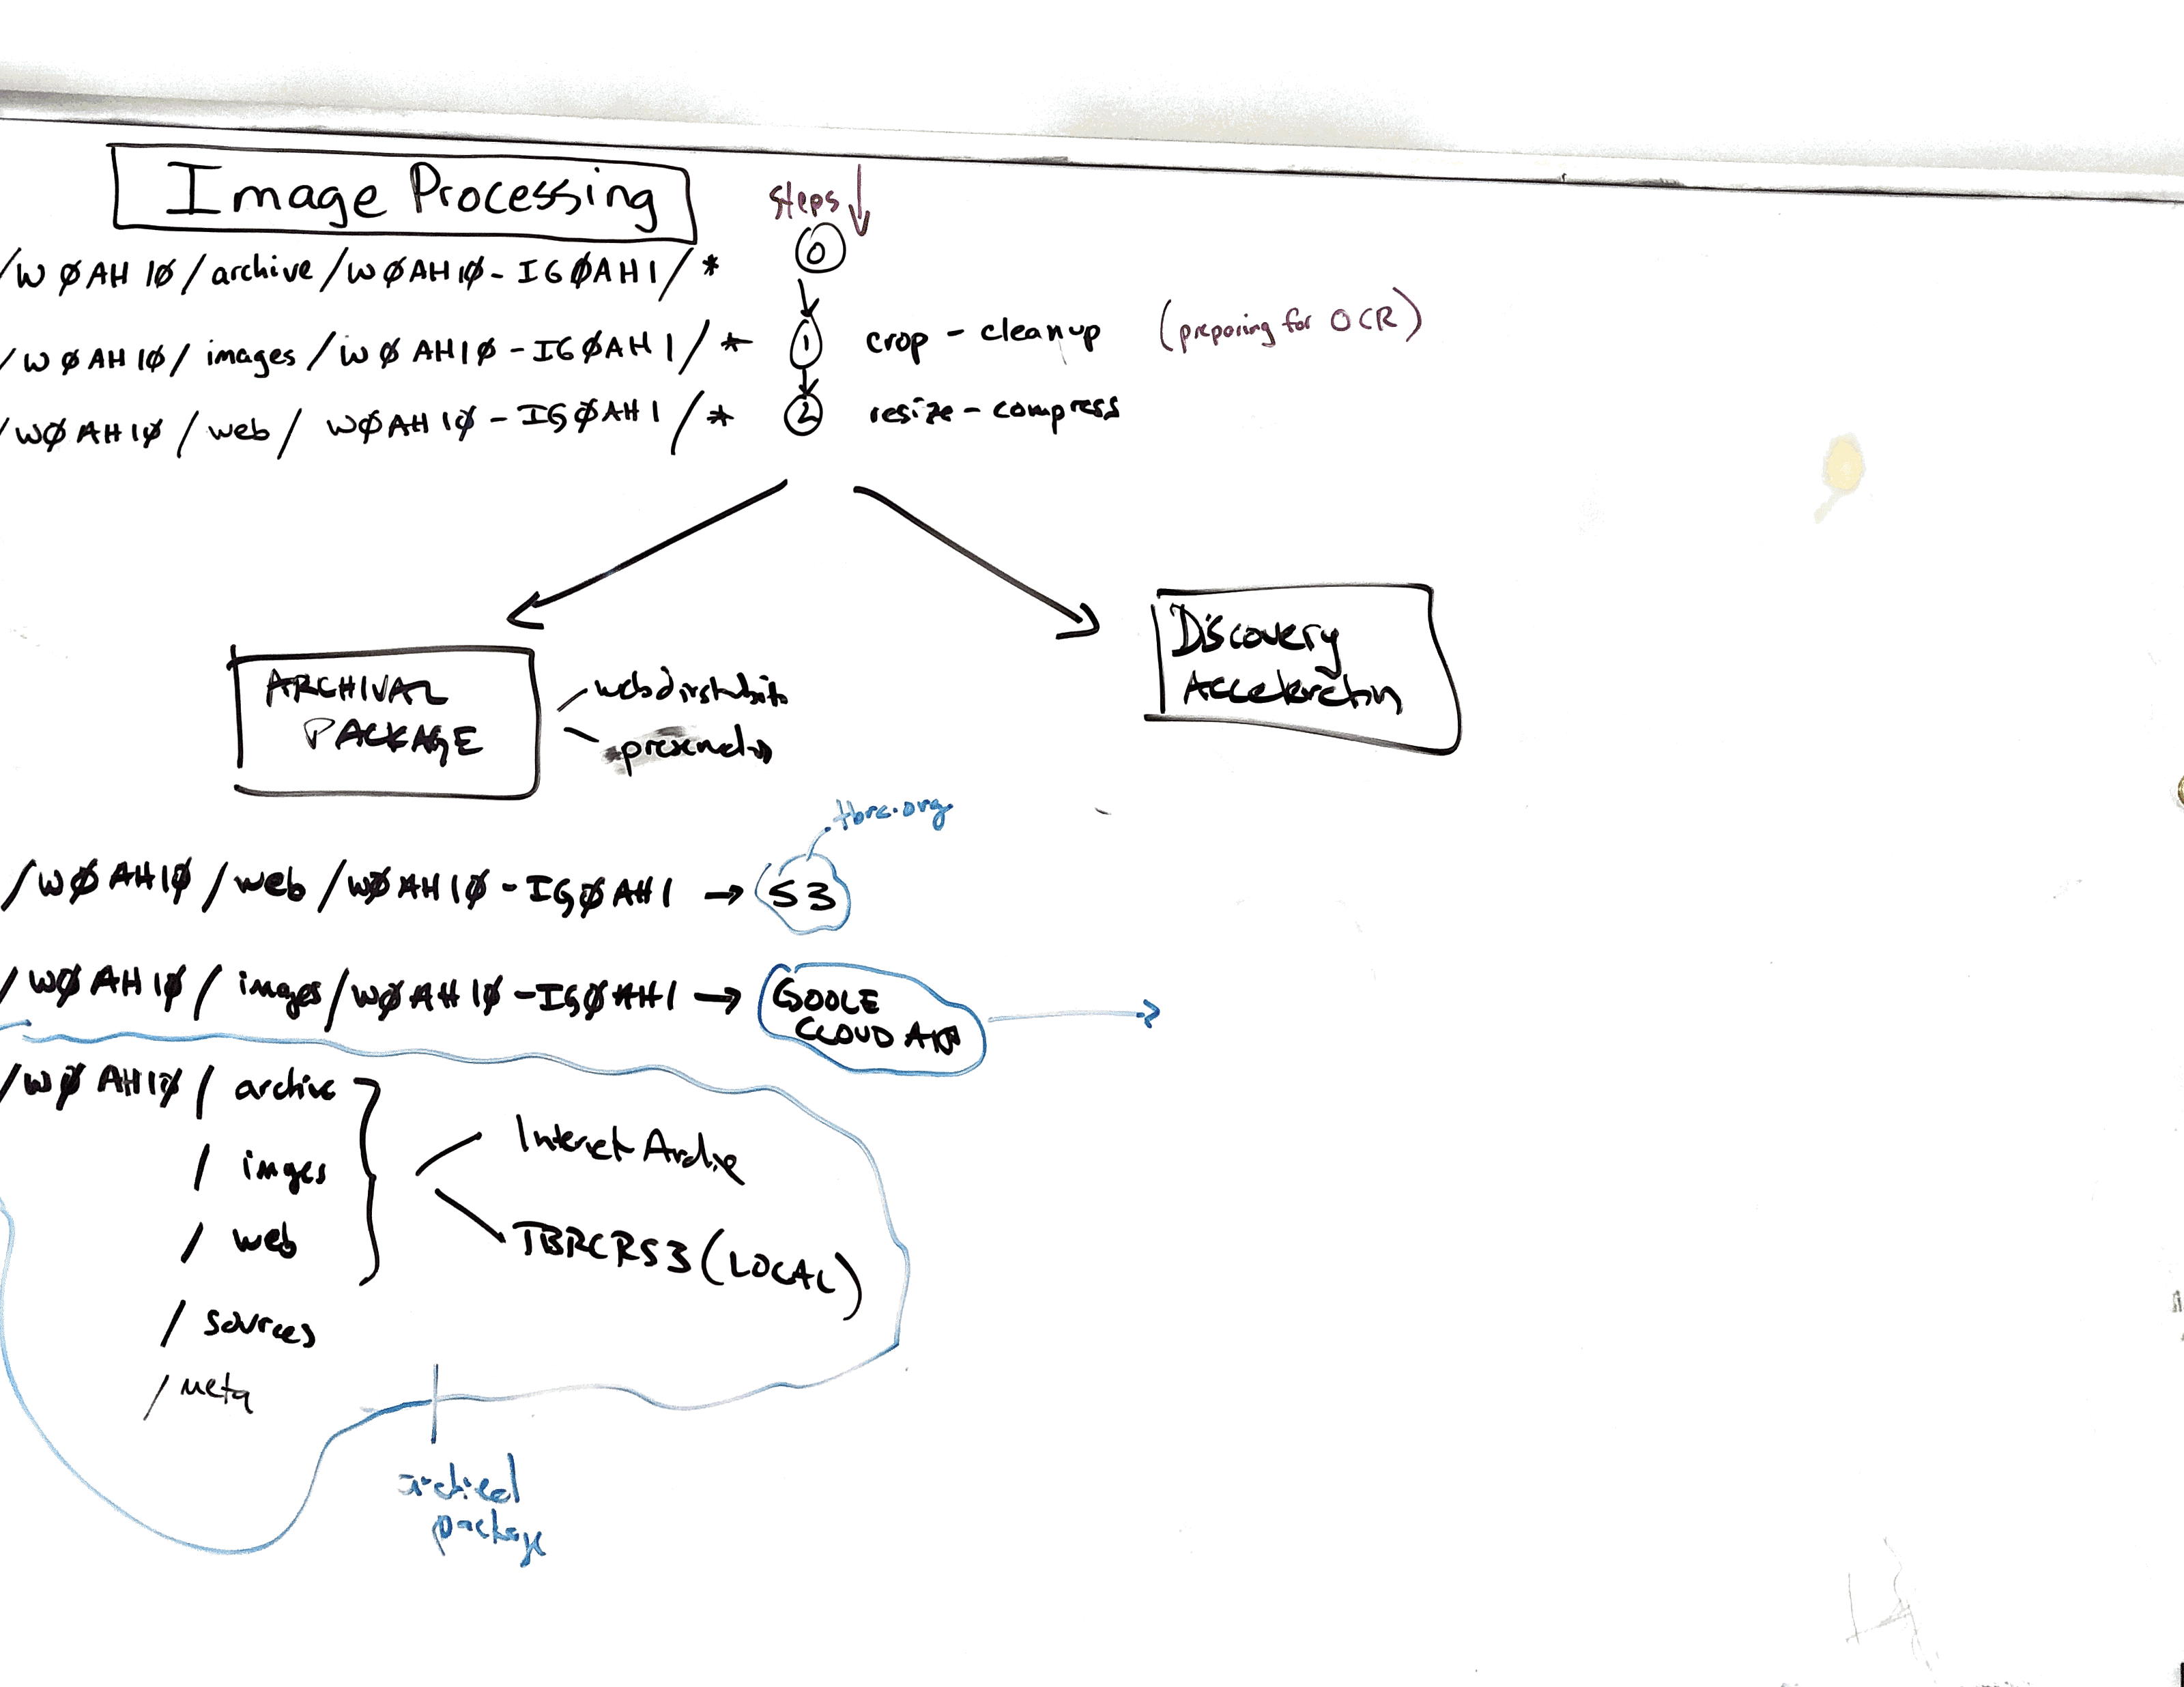 Image Processing
steps
/WØAH1Ø/archive/WØAH1Ø-IGØAH1/*
0
/WØAH1Ø/images/WØAH1Ø-IGØAH1/*
1 crop - cleanup (preparing for OCR)
/WØAH1Ø/web/WØAH1Ø-IGØAH1/*
2 resize - compress
ARCHIVAL
PACKAGE
Discovery
Acceleration
tbrc.org
/WØAH1Ø/web/WØAH1Ø-IGØAH1 → S3
/WØAH1Ø/images/WØAH1Ø-IGØAH1 → GOOLE
CLOUD
/WØAH1Ø/archive
/images
/web
/sources
/meta
Internet Archive
TBRCRS3 (LOCAL)
package